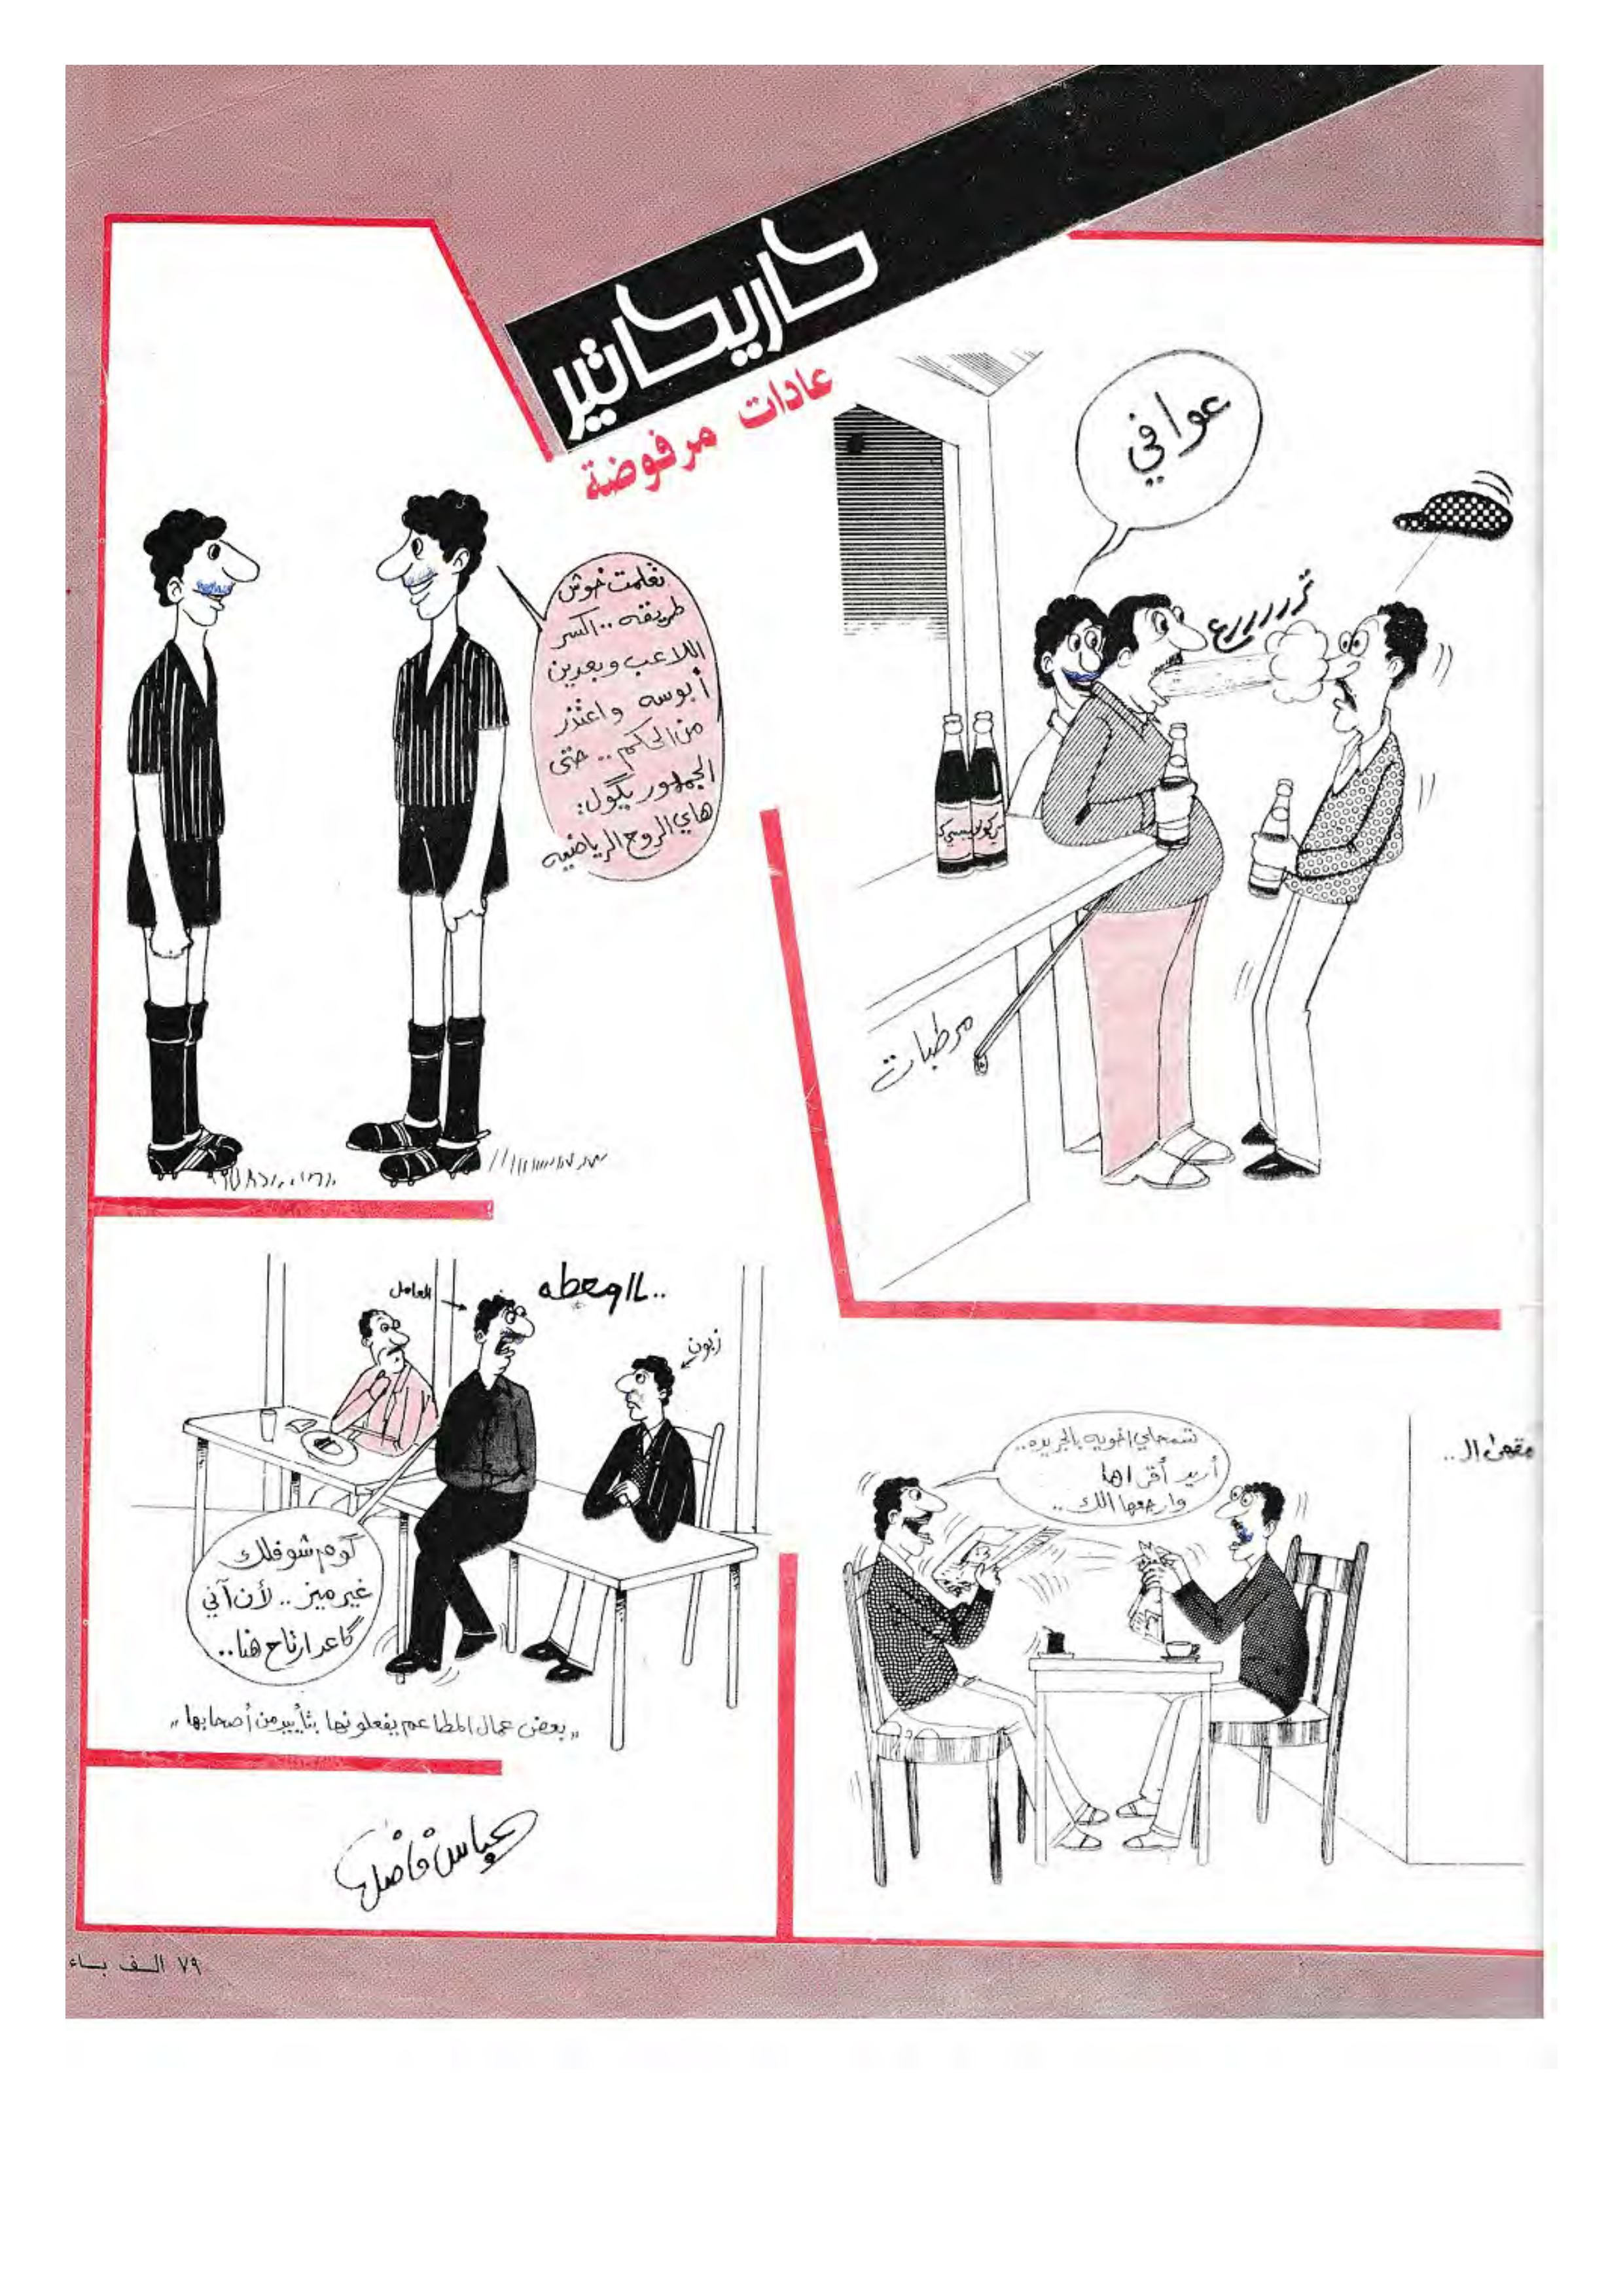 كاريكاتير
عادات مرفوضة
عوافي
تررررررع
مرطبات
تعلمت خوش
طريقه .. اكسر
اللاعب وبعدين
أبوسه واعتذر
من الحكم .. حتى
الجمهور يگول:
هاي الروح الرياضيه
العامل
زبون
گوم شوفلك
غير ميز .. لأن آني
گاعد ارتاح هنا..
„ بعض عمال المطاعم يفعلونها بتأييد من أصحابها „
مقهى الـ ..
تسمحلي اخويه بالجريده..
أريد أقراها
وارجعها الك..
عباس فاضل
٧٩ الف باء